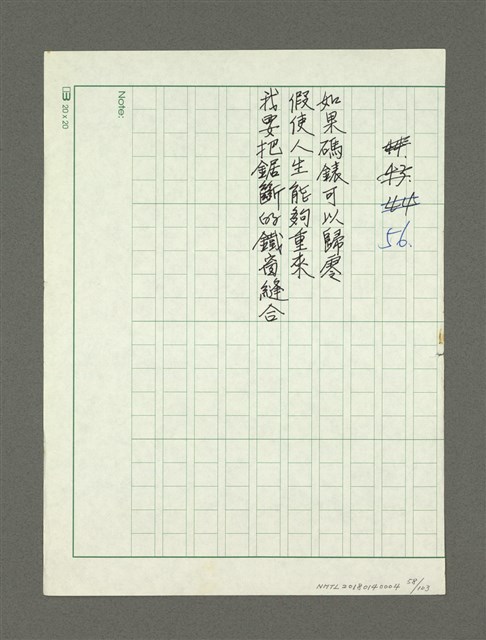 43.
44
56.
如果碼錶可以歸零
假使人生能夠重來
我要把鋸斷的鐵窗縫合
Note:
20×20
NMTL20180140004 58/103